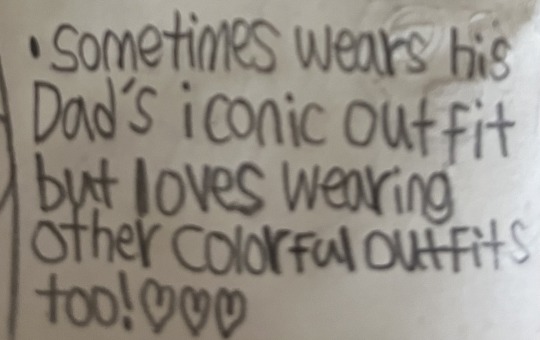 • Sometimes wears his
Dad's iconic outfit
but loves wearing
other colorful outfits
too! ♡♡♡